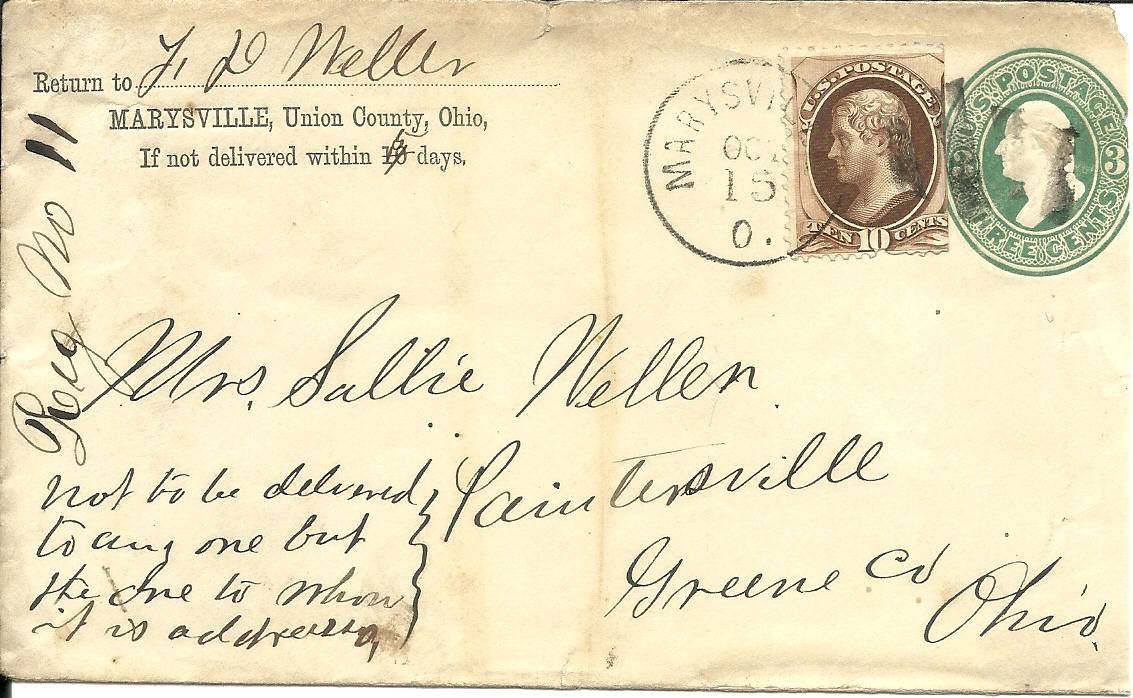 Return to F. D Weller
MARYSVILLE, Union County, Ohio,
If not delivered within days.
Reg No 11
MARYSVI
OCT
15
O.
U.S. POSTAGE
TEN 10 CENTS
U.S. POSTAGE
3
THREE CENTS
Mrs. Sallie Weller
Paintersville
Greene Co
Ohio
not to be delivered
to any one but
the one to whom
it is addressed